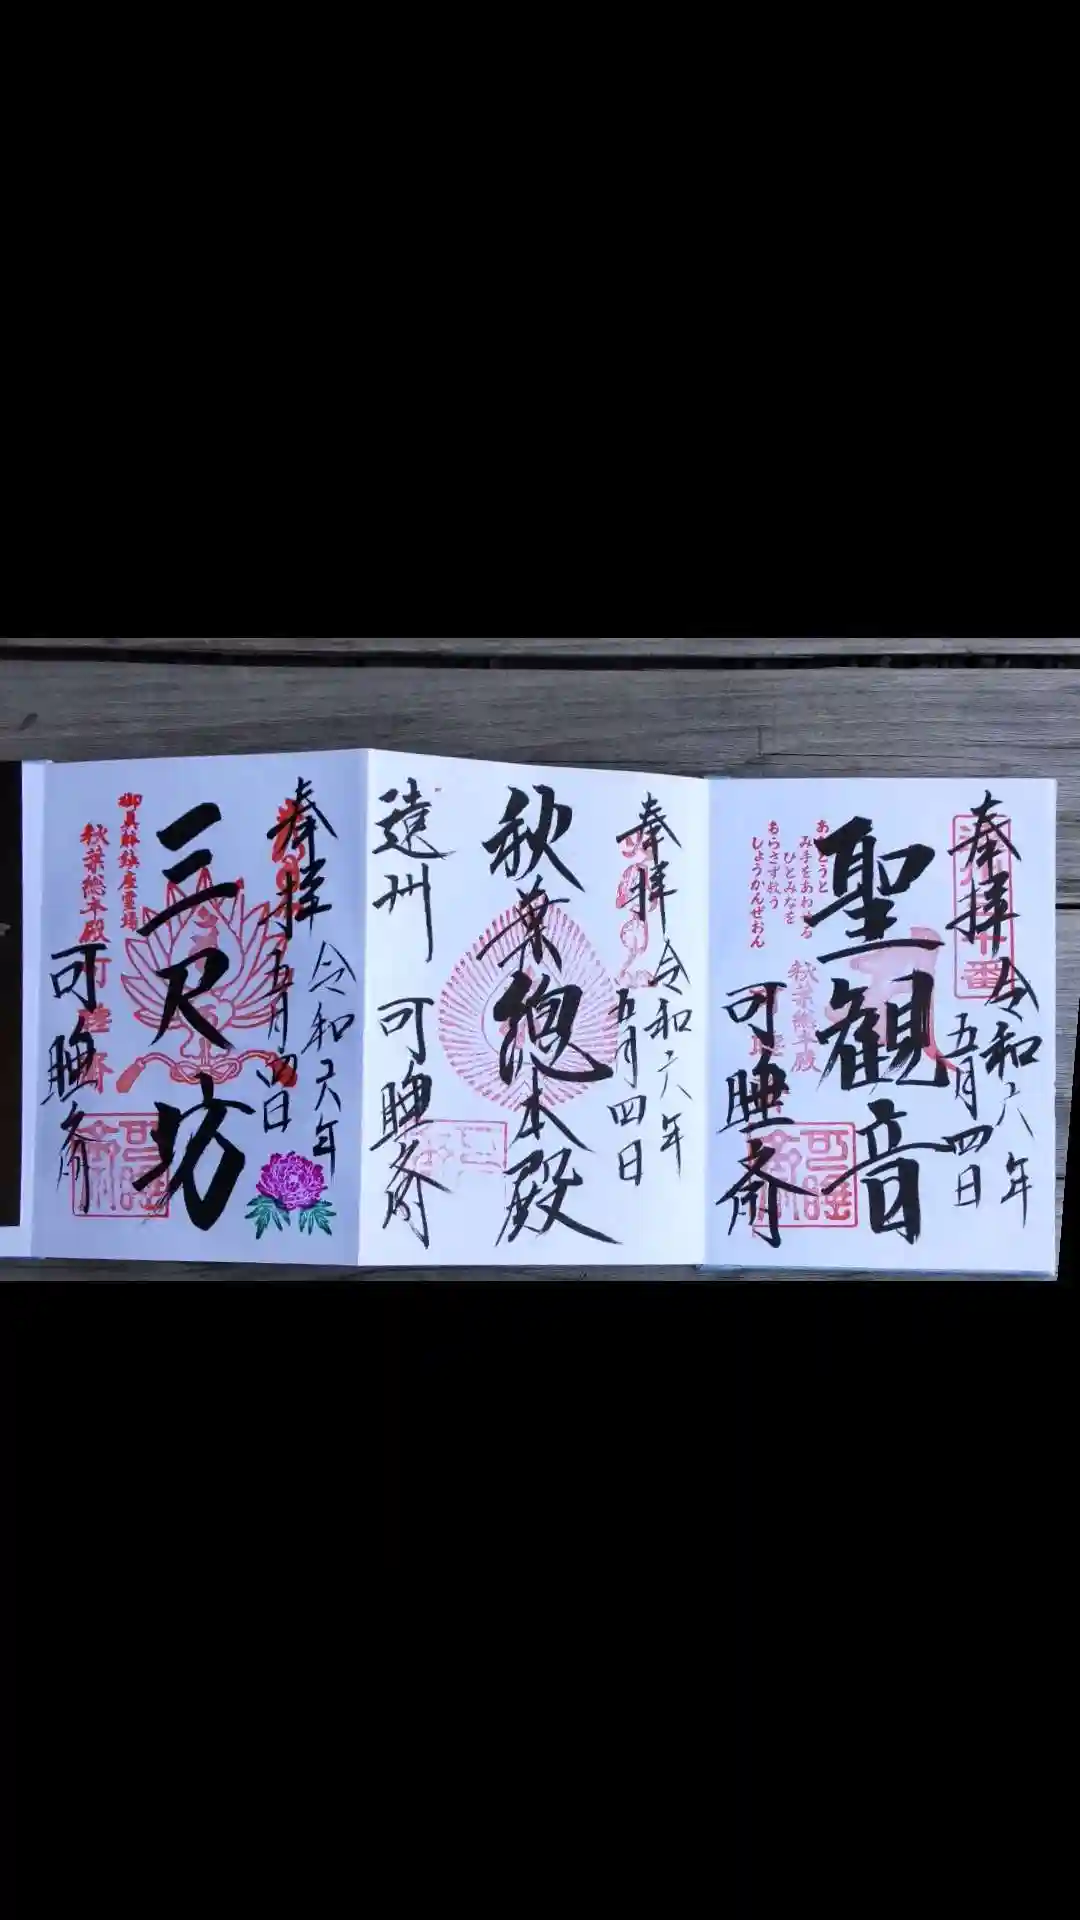 奉拝
令和六年
五月四日
聖観音
み手をあわせる
ひとみなを
もらさず救う
しょうかんぜおん
秋葉總本殿
可睡斎
奉拝
令和六年
五月四日
秋葉總本殿
遠州
可睡斎
奉拝
令和六年
五月四日
三尺坊
御真躰鎮座霊場
秋葉總本殿
可睡齋
可睡斎